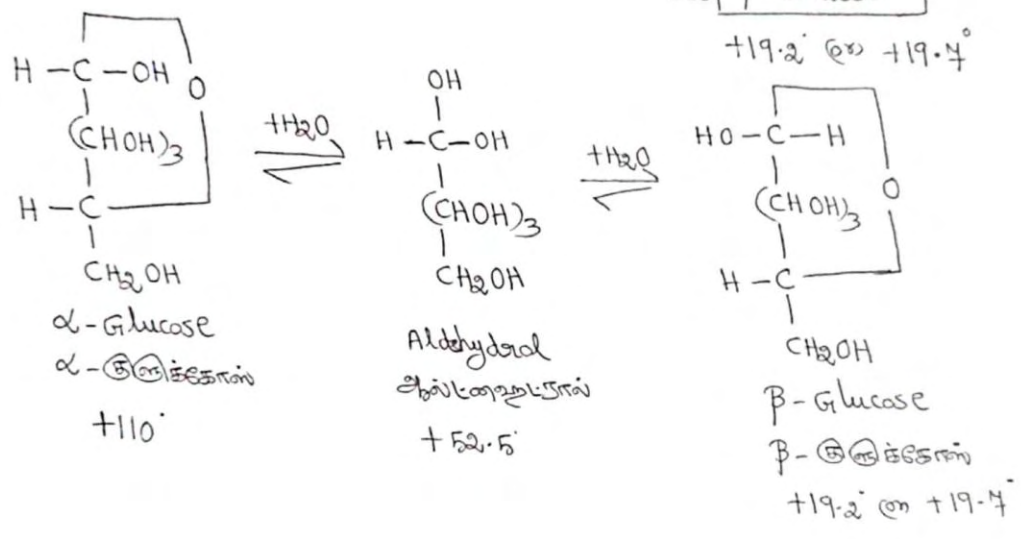 +19.2° (or) +19.7°
H – C – OH
O
(CHOH)3
H – C
CH2OH
α - Glucose
α - குளுக்கோஸ்
+110°
+H2O
OH
H – C – OH
(CHOH)3
CH2OH
Aldehydrol
ஆல்டிஹைட்ரால்
+52.5°
+H2O
HO – C – H
O
(CHOH)3
H – C
CH2OH
β - Glucose
β - குளுக்கோஸ்
+19.2° (or) +19.7°